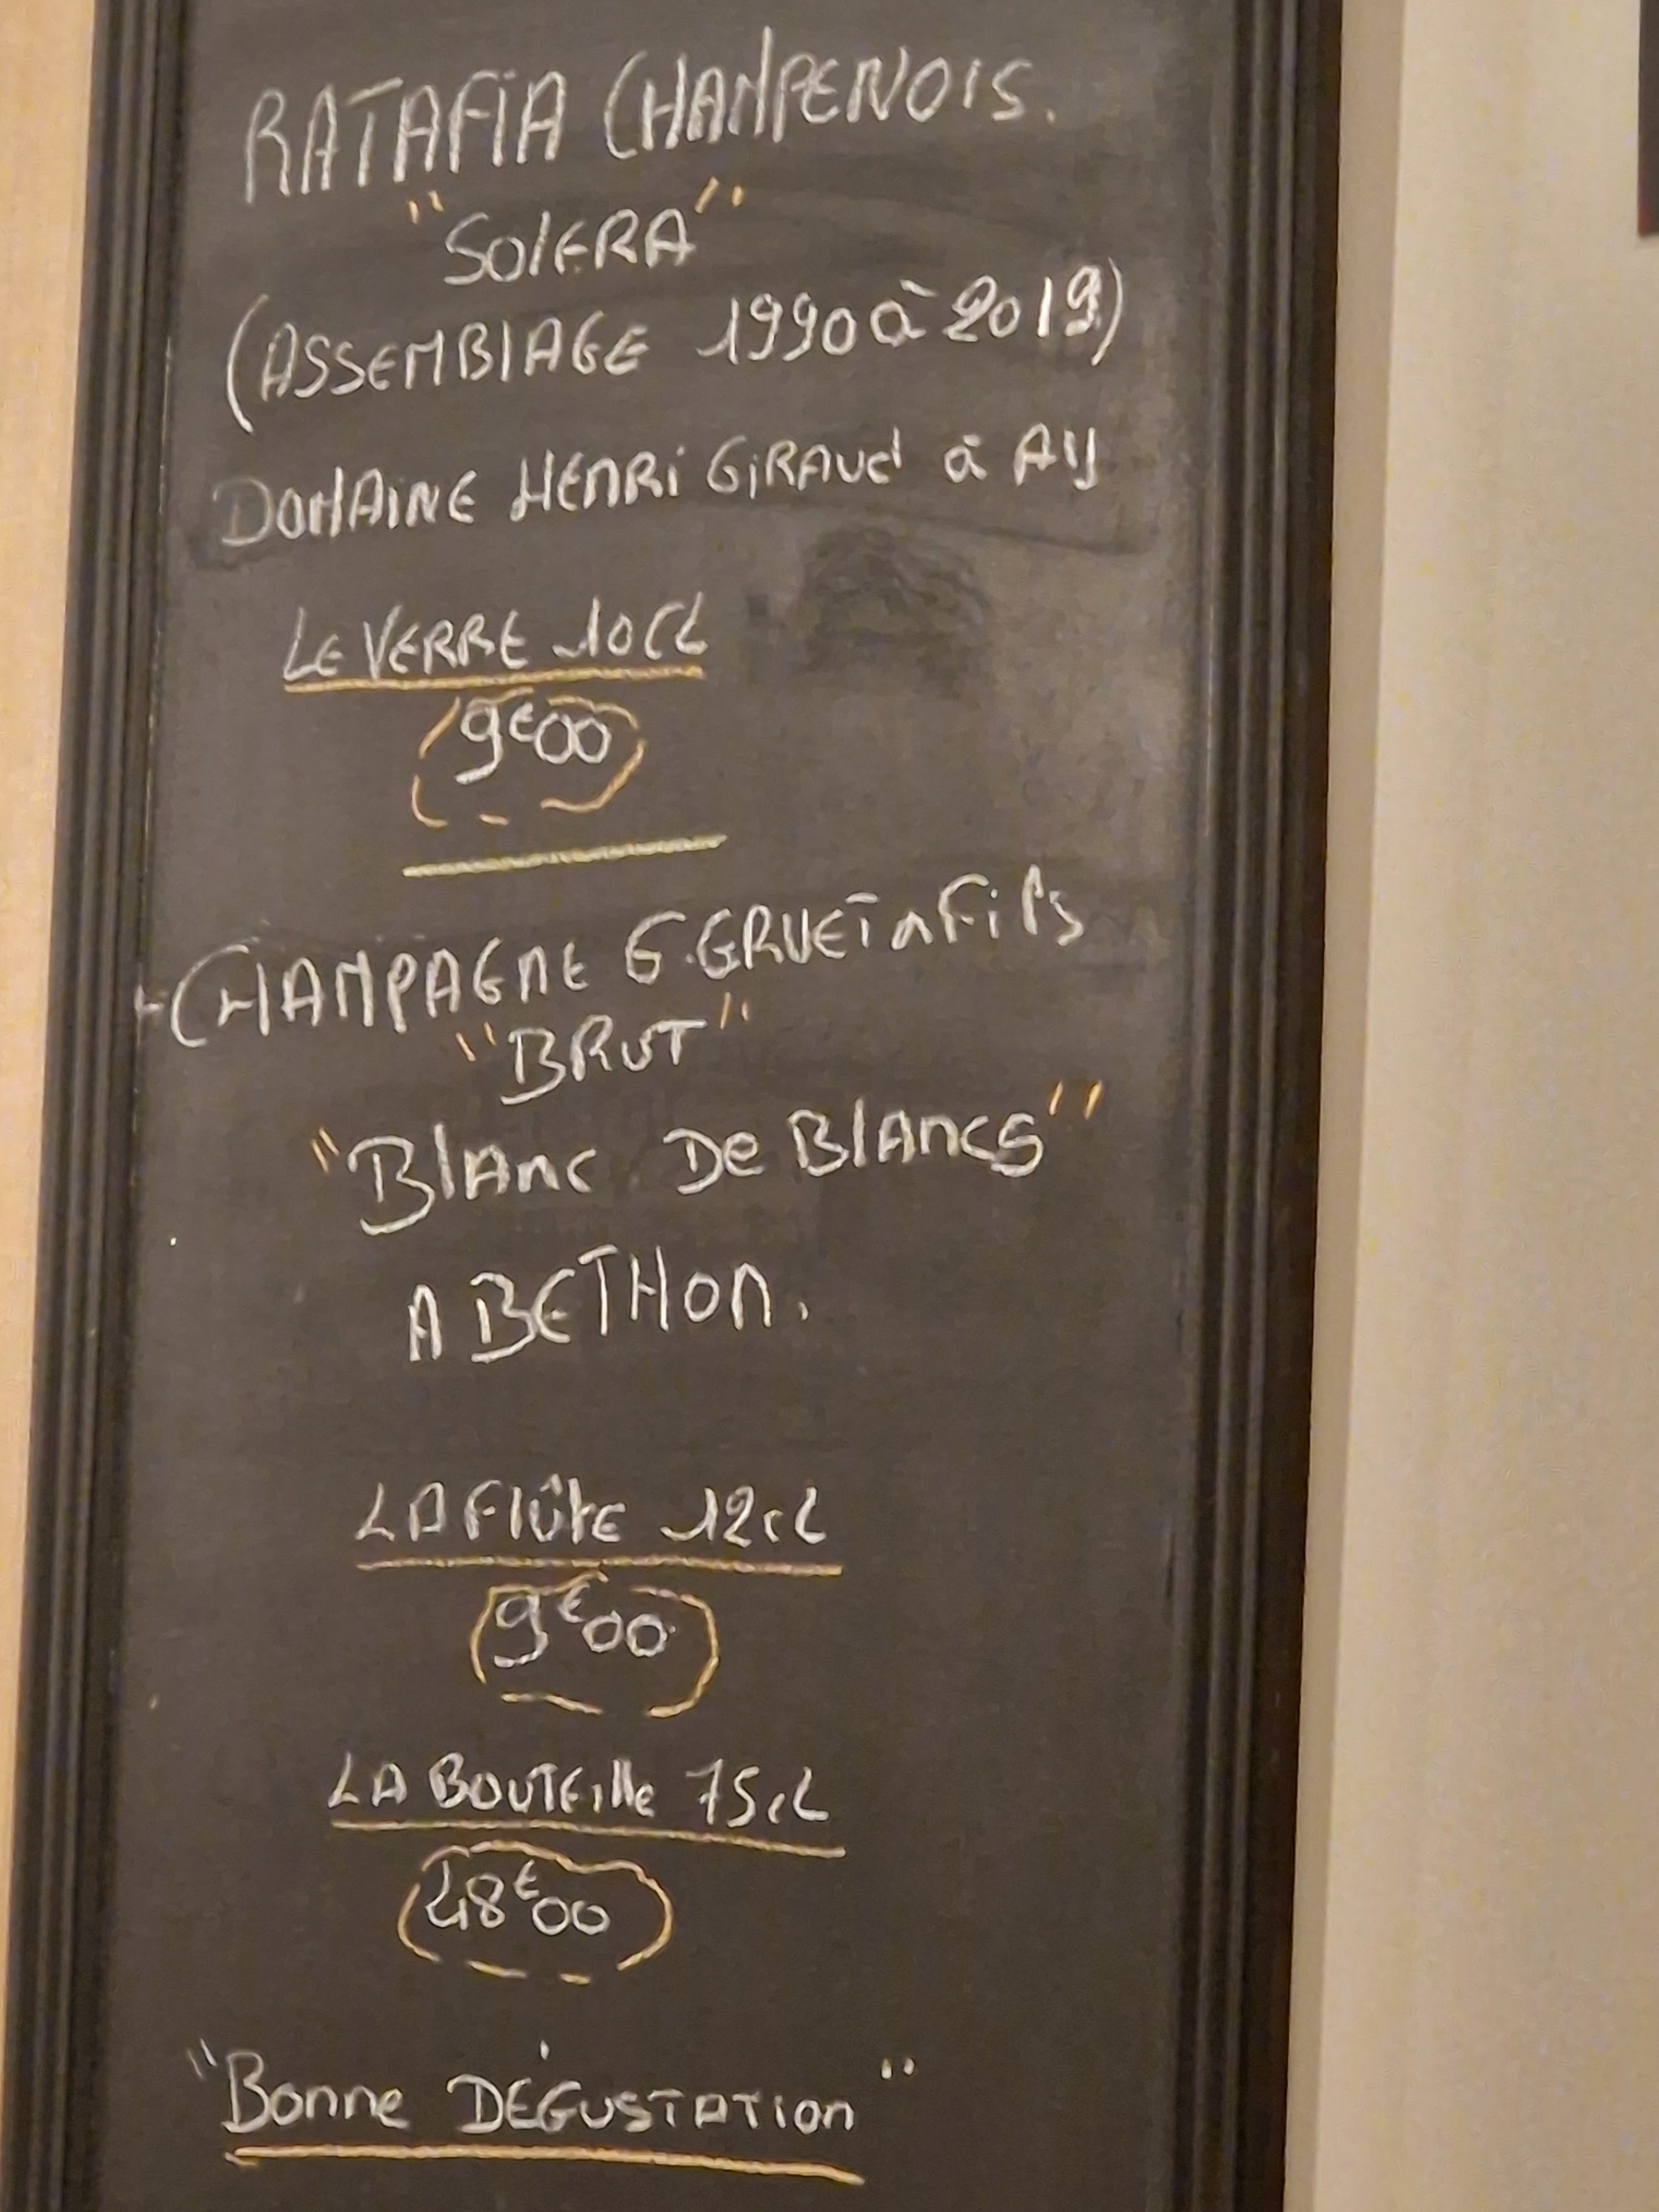 RATAFIA CHAMPENOIS.
"SOlERA"
(ASSEMBlAGE 1990 à 2019)
DOMAINE HENRI GIRAUd à AY
LE VERRE 10CL
9€00
CHAMPAGNE G.GRUET & FilS
"BRUT"
"BlAnc De BlAncs"
A BETHOn.
LA FlûtE 12cL
9€00
LA BOUTEille 75cL
48€00
"Bonne DÉGUSTATIOn"